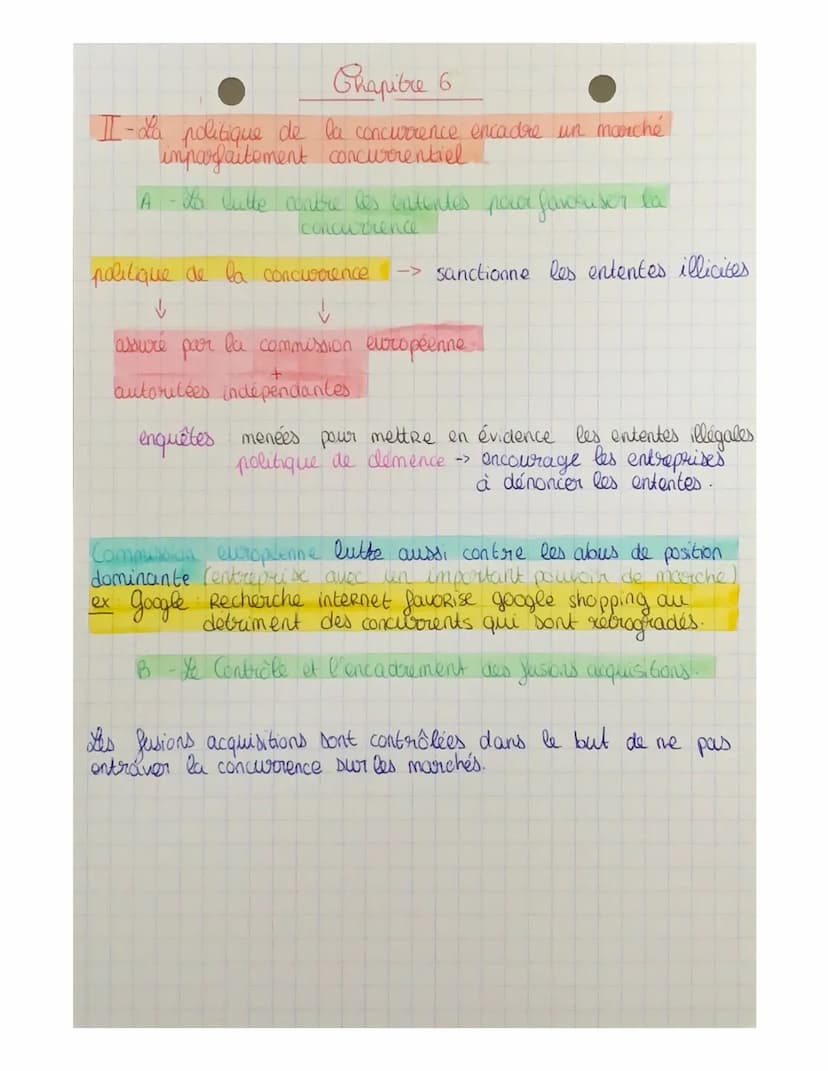 Chapitre 6
II - La politique de la concurrence encadre un marché
imparfaitement concurrentiel
A - La lutte contre les ententes pour favouriser la
concurrence
politique de la concurrence -> sanctionne les ententes illicites
↓ ↓
assuré par la commission européenne
+
autoritées indépendantes
enquêtes menées pour mettre en évidence les ententes illégales
politique de clémence -> encourage les entreprises
à dénoncer les ententes.
Commission européenne lutte aussi contre les abus de position
dominante (entreprise avec un important pouvoir de marché)
ex : Google : Recherche internet favorise google shopping au
détriment des concurrents qui sont rétrogradés.
B - Le Contrôle et l'encadrement des fusions acquisitions.
Les fusions acquisitions sont contrôlées dans le but de ne pas
entraver la concurrence sur les marchés.